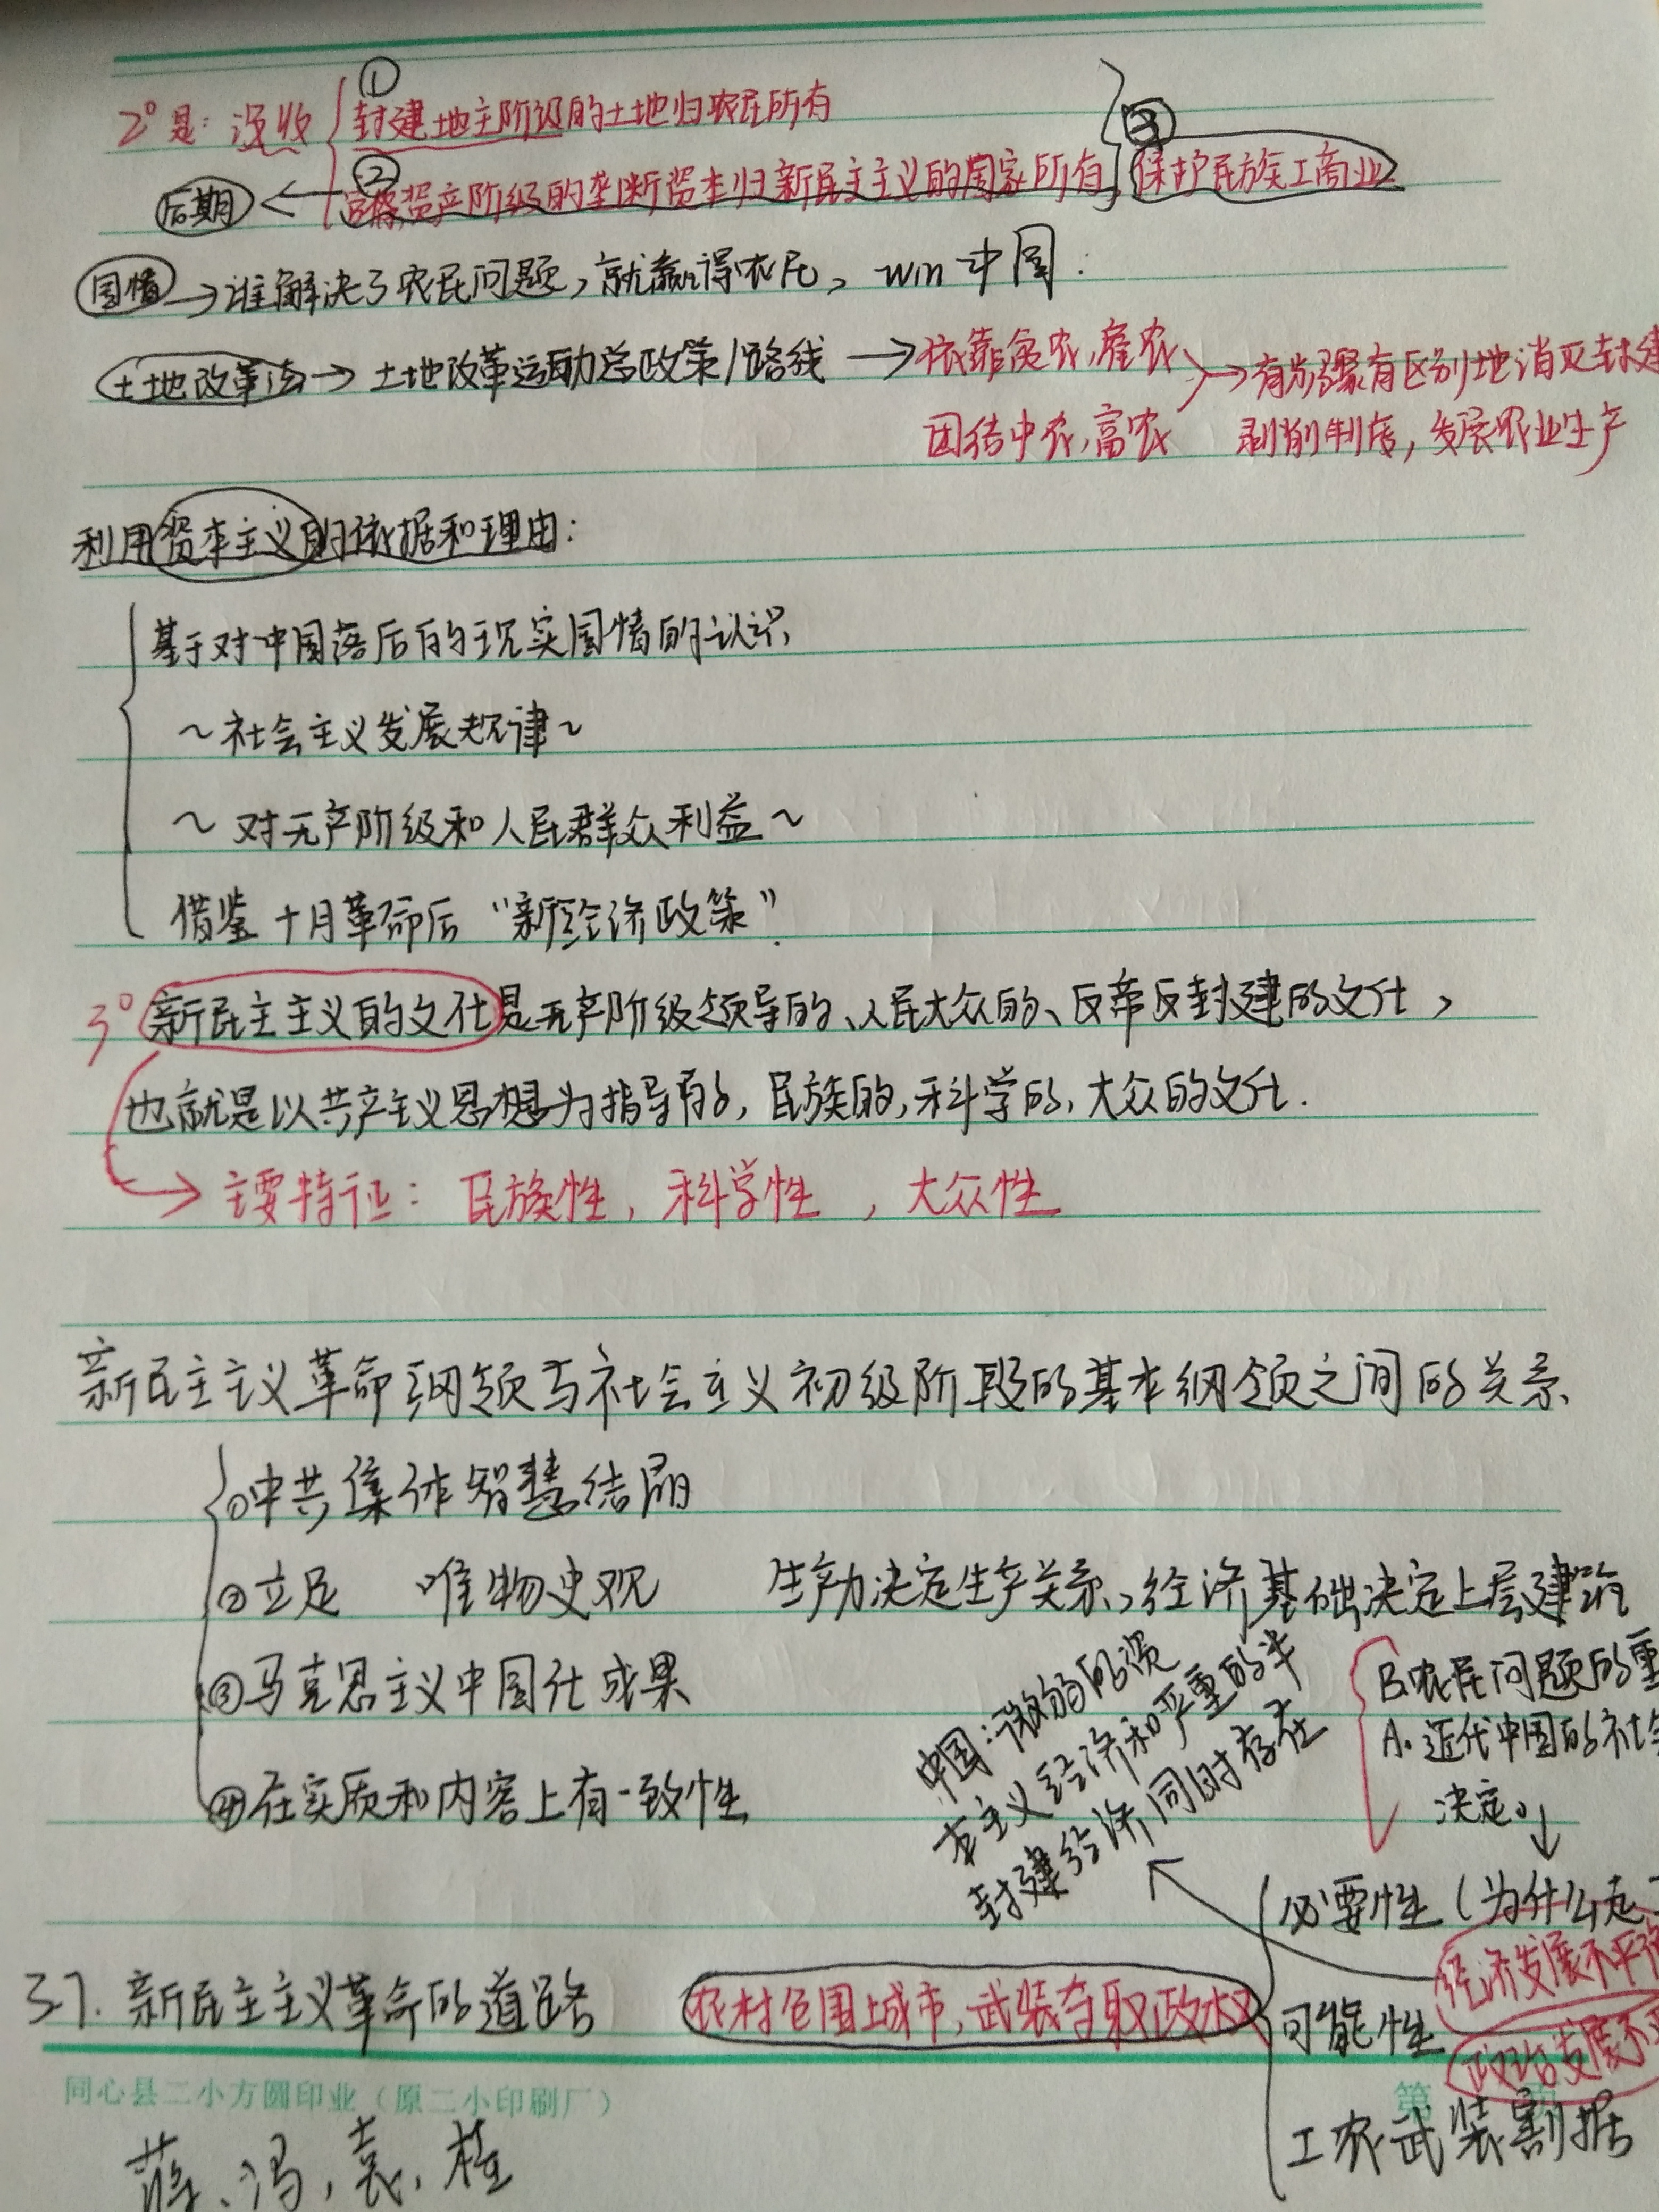 2° 是：没收 { ① 封建地主阶级的土地归农民所有
后期 ← ② 官僚资产阶级的垄断资本归新民主主义的国家所有 } ③ 保护民族工商业
国情 → 谁解决了农民问题，就赢得农民，win中国.
土地改革法 → 土地改革运动总政策/路线 → 依靠贫农,雇农
团结中农,富农
→ 有步骤有区别地消灭封建
剥削制度，发展农业生产
利用资本主义的依据和理由：
基于对中国落后的现实国情的认识
～社会主义发展规律～
～对无产阶级和人民群众利益～
借鉴十月革命后“新经济政策”.
3° 新民主主义的文化是无产阶级领导的、人民大众的、反帝反封建的文化，
也就是以共产主义思想为指导的，民族的,科学的,大众的文化.
→ 主要特征：民族性，科学性，大众性
新民主主义革命纲领与社会主义初级阶段的基本纲领之间的关系
①中共集体智慧结晶
②立足 唯物史观 生产力决定生产关系,经济基础决定上层建筑
③马克思主义中国化成果
④在实质和内容上有一致性
中国：微弱的资
本主义经济和严重的半
封建经济同时存在
B.农民问题的重
A.近代中国的社会
决定。↓
必要性（为什么走
经济发展不平
37. 新民主主义革命的道路 农村包围城市,武装夺取政权
可能性
政治发展不
工农武装割据
同心县二小方圆印业（原二小印刷厂）
第
蒋、冯,袁,桂